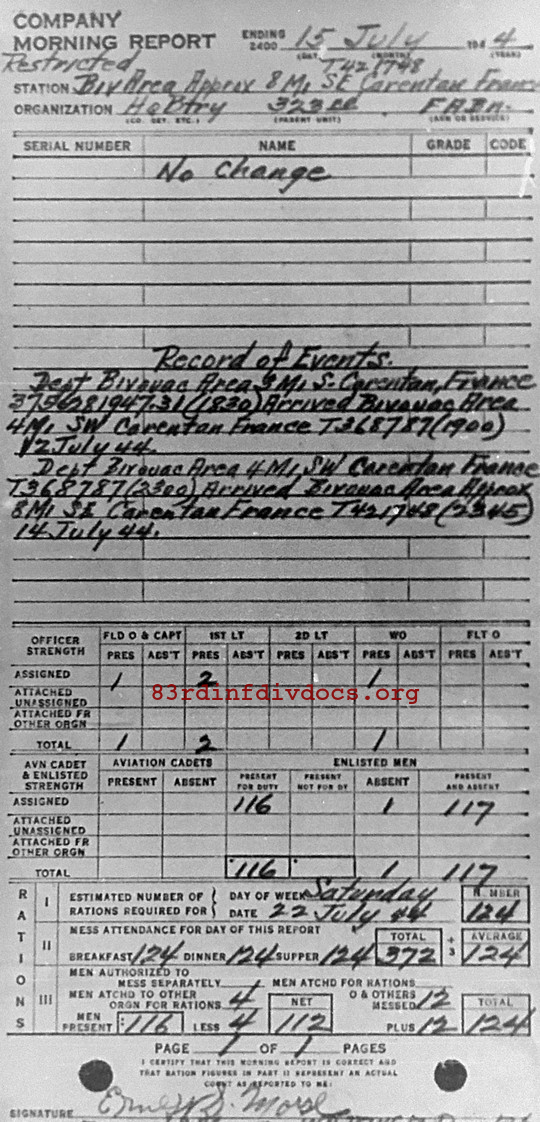 COMPANY
MORNING REPORT
ENDING 2400 15 July 1944
(DAY) (MONTH) (YEAR)
Restricted T421748
STATION Biv Area Approx 8 Mi SE Carentan France
ORGANIZATION Hq Btry 323rd F.A.Bn.
(CO. DET. ETC.) (PARENT UNIT) (ARM OR SERVICE)
SERIAL NUMBER NAME GRADE CODE
No Change
Record of Events.
Dept Bivouac Area 3 Mi S. Carentan, France
(1830) Arrived Bivouac Area
4 Mi SW Carentan France T368787 (1900)
12 July 44.
Dept Bivouac Area 4 Mi SW Carentan France
T368787 (2300) Arrived Bivouac Area Approx
8 Mi SE Carentan France T421748 (2345)
14 July 44.
OFFICER STRENGTH FLD O & CAPT 1ST LT 2D LT WO FLT O
PRES ABS'T PRES ABS'T PRES ABS'T PRES ABS'T PRES ABS'T
ASSIGNED 1 2 1
83rdinfdivdocs.org
ATTACHED UNASSIGNED
ATTACHED FR OTHER ORGN
TOTAL 1 2 1
AVN CADET & ENLISTED STRENGTH AVIATION CADETS ENLISTED MEN
PRESENT ABSENT PRESENT FOR DUTY PRESENT NOT FOR DY ABSENT PRESENT AND ABSENT
ASSIGNED 116 1 117
ATTACHED UNASSIGNED
ATTACHED FR OTHER ORGN
TOTAL 116 1 117
RATIONS
I ESTIMATED NUMBER OF RATIONS REQUIRED FOR
DAY OF WEEK Saturday NUMBER
DATE 22 July 44 124
II MESS ATTENDANCE FOR DAY OF THIS REPORT TOTAL ÷ 3 AVERAGE
BREAKFAST 124 DINNER 124 SUPPER 124 372 124
III MEN AUTHORIZED TO MESS SEPARATELY MEN ATCHD FOR RATIONS
MEN ATCHD TO OTHER ORGN FOR RATIONS 4 NET O & OTHERS MESSED 12 TOTAL
MEN PRESENT 116 LESS 4 112 PLUS 12 124
PAGE 1 OF 1 PAGES
I CERTIFY THAT THIS MORNING REPORT IS CORRECT AND
THAT RATION FIGURES IN PART II REPRESENT AN ACTUAL
COUNT AS REPORTED TO ME:
SIGNATURE Morse